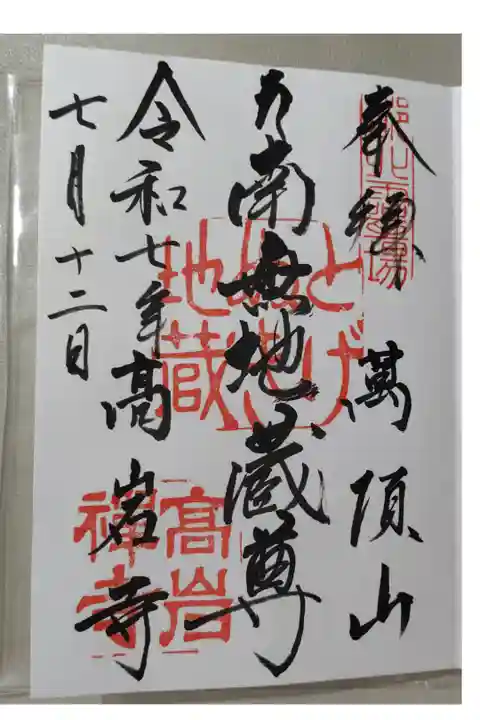 奉
萬頂山
南無地蔵尊
令和七年
七月十二日
高岩寺
とげぬき地蔵
高岩禪寺